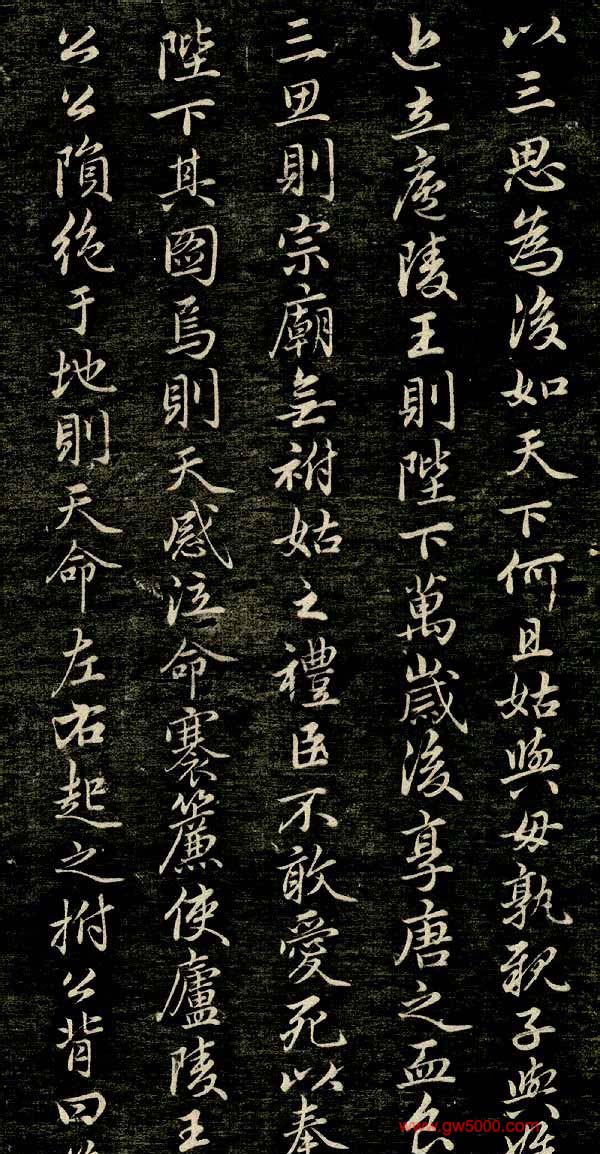 以三思為後如天下何且姑與母孰親子與姪
近立廬陵王則陛下萬歲後享唐之血食
三思則宗廟無祔姑之禮臣不敢愛死以奉
陛下其圖焉則天感泣命褰簾使廬陵王
公公隕絶于地則天命左右起之拊公背曰
www.gw5000.com